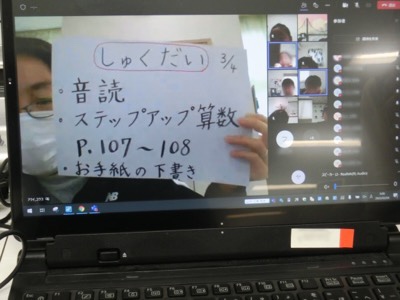 しゅくだい 3/4
・音読
・ステップアップ算数
P.107〜108
・お手紙の下書き